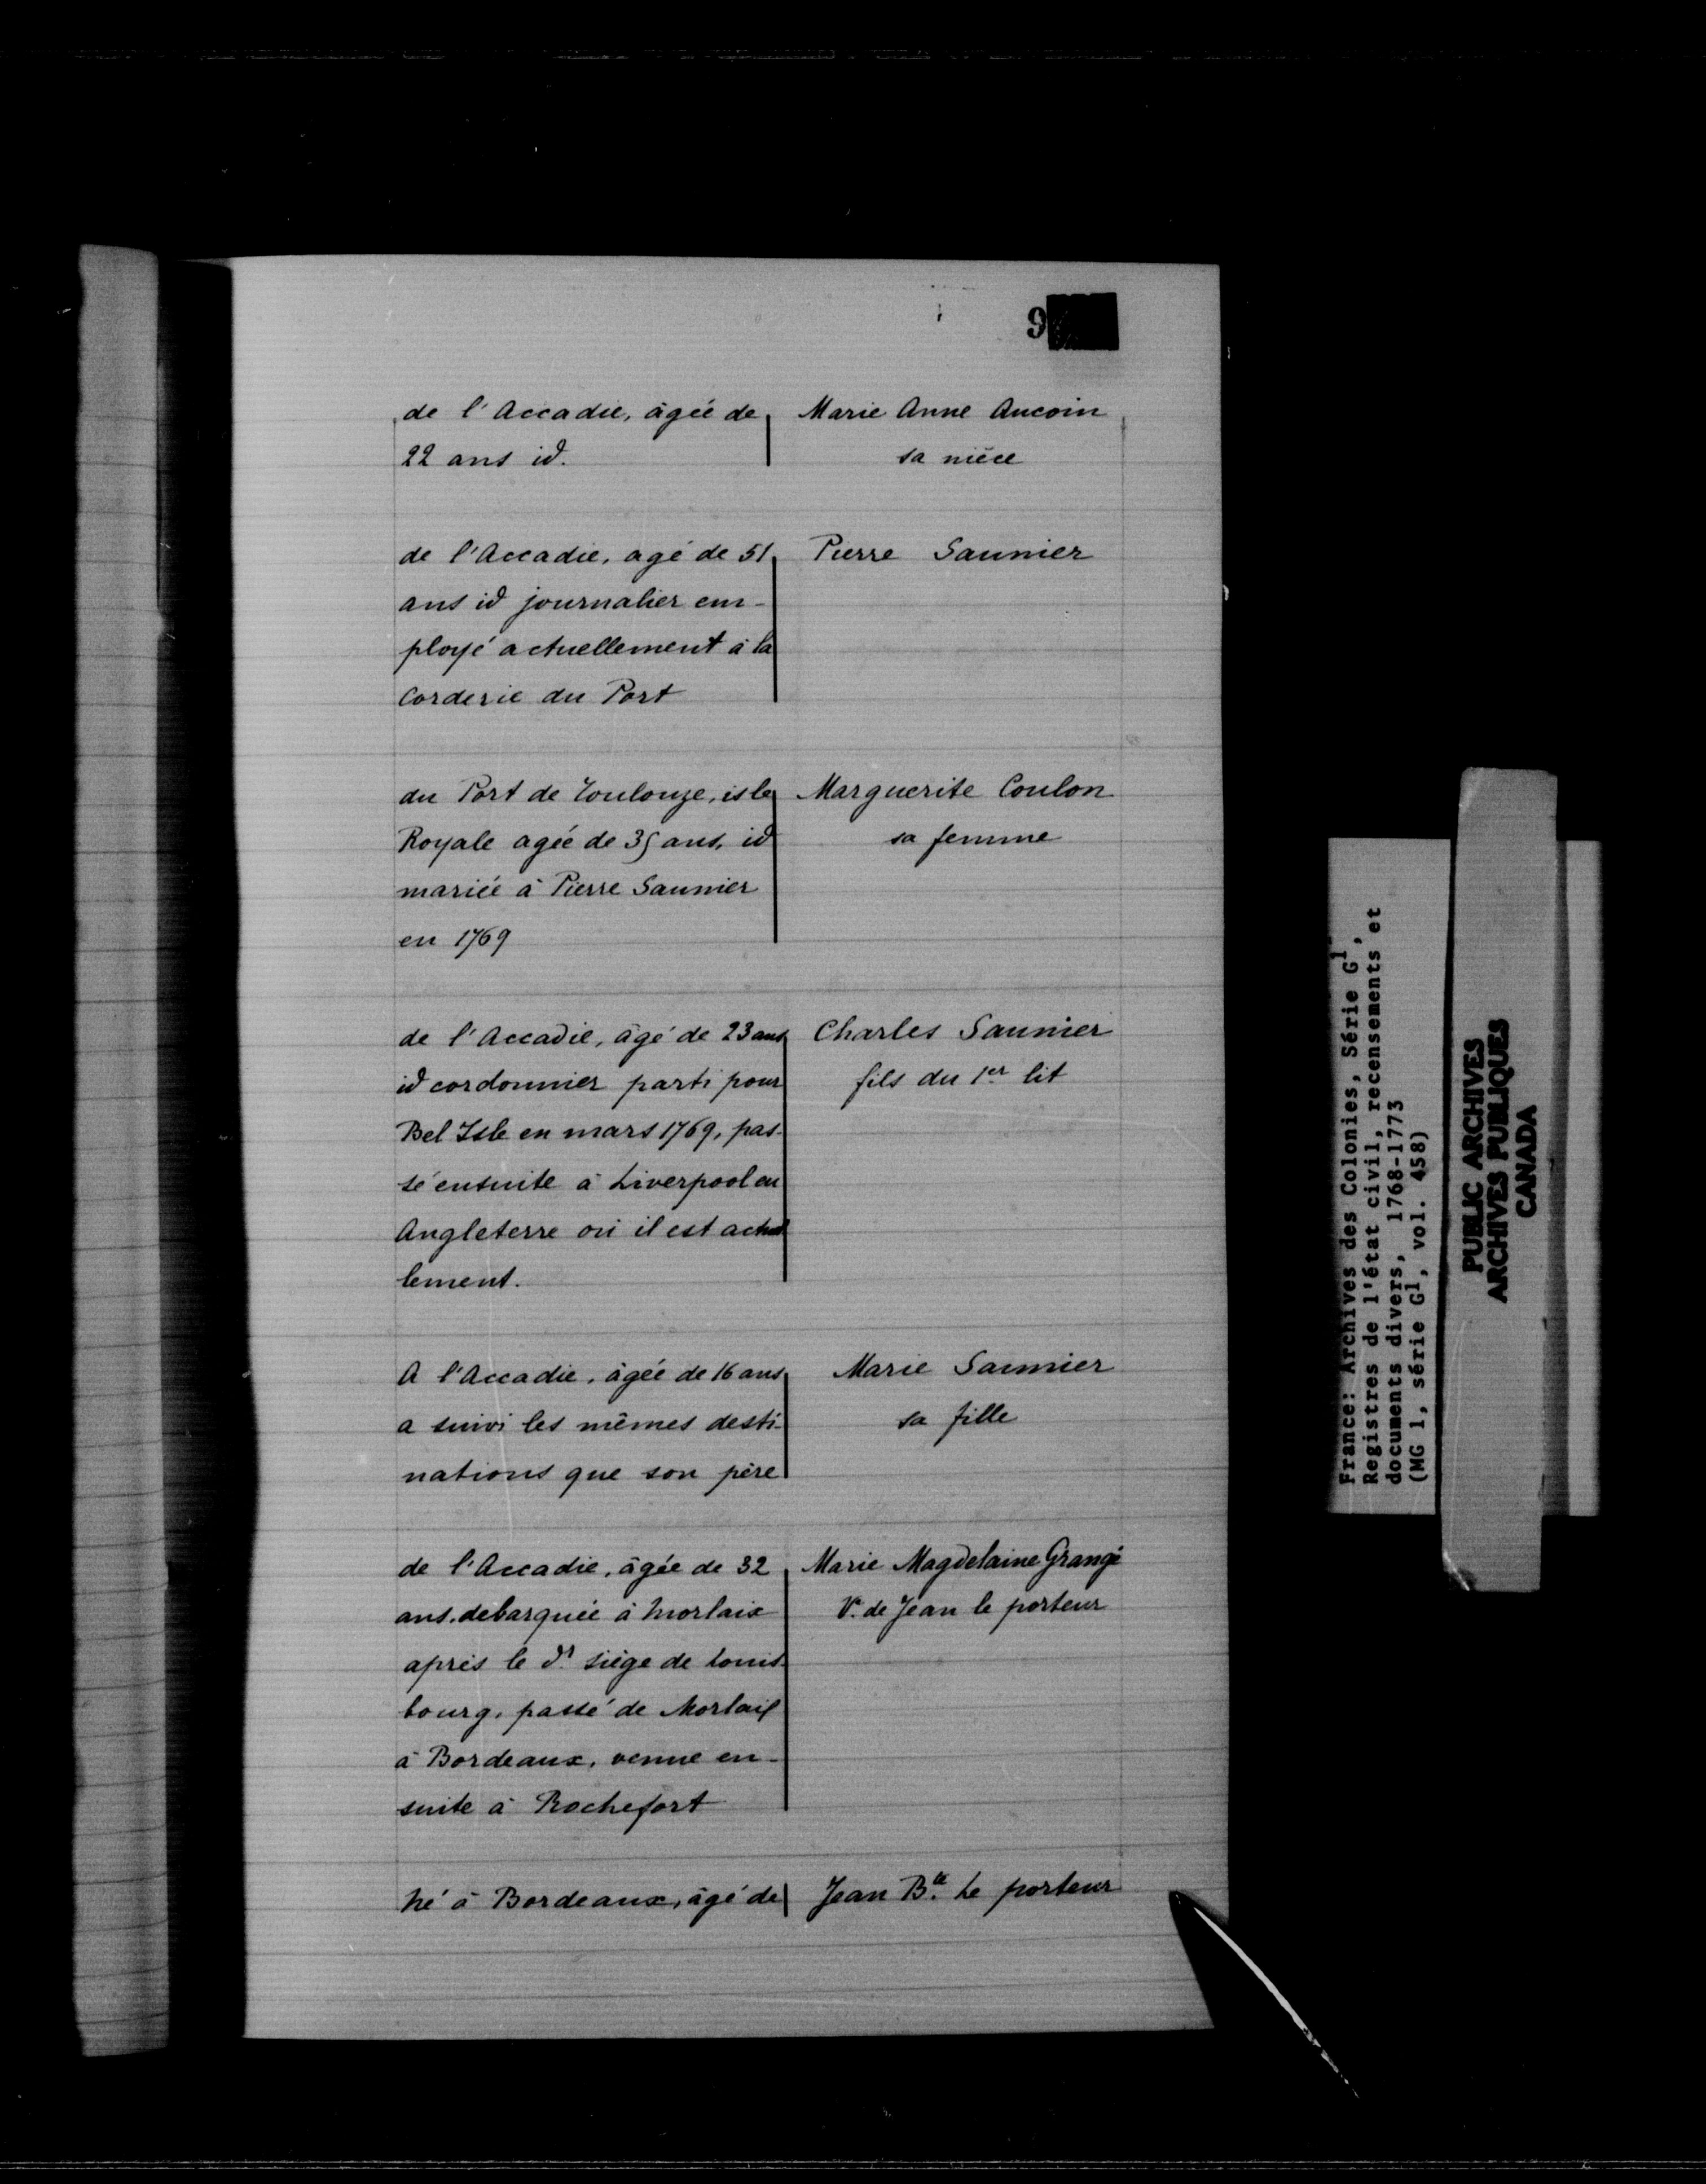 9
de l'Accadie, âgée de
22 ans id.
Marie Anne Aucoin
sa nièce
de l'Accadie, agé de 51
ans id journalier em-
ployé actuellement à la
Corderie du Port
Pierre Saunier
du Port de Toulouze, isle
Royale agée de 35 ans, id
mariée à Pierre Saunier
en 1769
Marguerite Coulon
sa femme
de l'Accadie, âgé de 23 ans
id cordonnier parti pour
Bel Isle en mars 1769, pas-
sé ensuite à Liverpool en
Angleterre où il est actuel
lement.
Charles Saunier
fils du 1er lit
A l'Accadie, âgée de 16 ans
a suivi les mêmes desti-
nations que son père
Marie Saunier
sa fille
de l'Accadie, âgée de 32
ans. debarquée à Morlaix
après le dr siège de Louis-
bourg, passé de Morlaix
à Bordeaux, venue en-
suite à Rochefort
Marie Magdelaine Grangé
Ve de Jean le porteur
Né à Bordeaux, âgé de
Jean Bte Le porteur
France: Archives des Colonies, Série G1,
Registres de l'état civil, recensements et
documents divers, 1768-1773
(MG 1, série G1, vol. 458)
PUBLIC ARCHIVES
ARCHIVES PUBLIQUES
CANADA